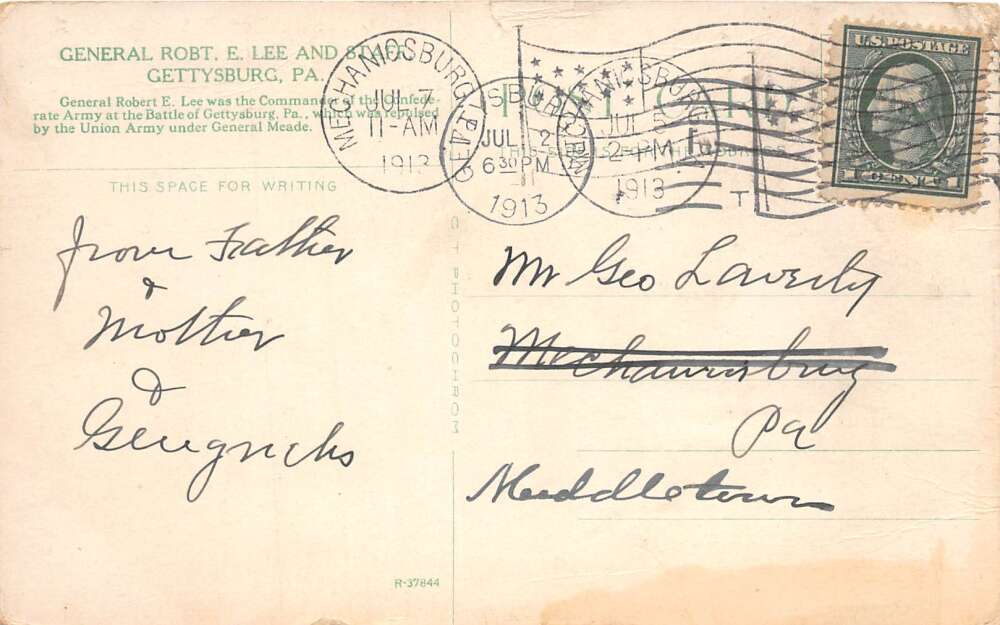 GENERAL ROBT. E. LEE AND STAFF,
GETTYSBURG, PA.
General Robert E. Lee was the Commander of the Confede-
rate Army at the Battle of Gettysburg, Pa., which was repulsed
by the Union Army under General Meade.
THIS SPACE FOR WRITING
MECHANICSBURG, PA.
JUL 7
11-AM
1913
JUL 2
6 30 PM
1913
MECHANICSBURG
JUL 5
2-PM
1913
U.S. POSTAGE
1 CENT 1
from Father
&
Mother
&
Gingrichs
PHOTOCHROM
Mr Geo Laverty
Mechanicsburg
Pa
Middletown
R-37844